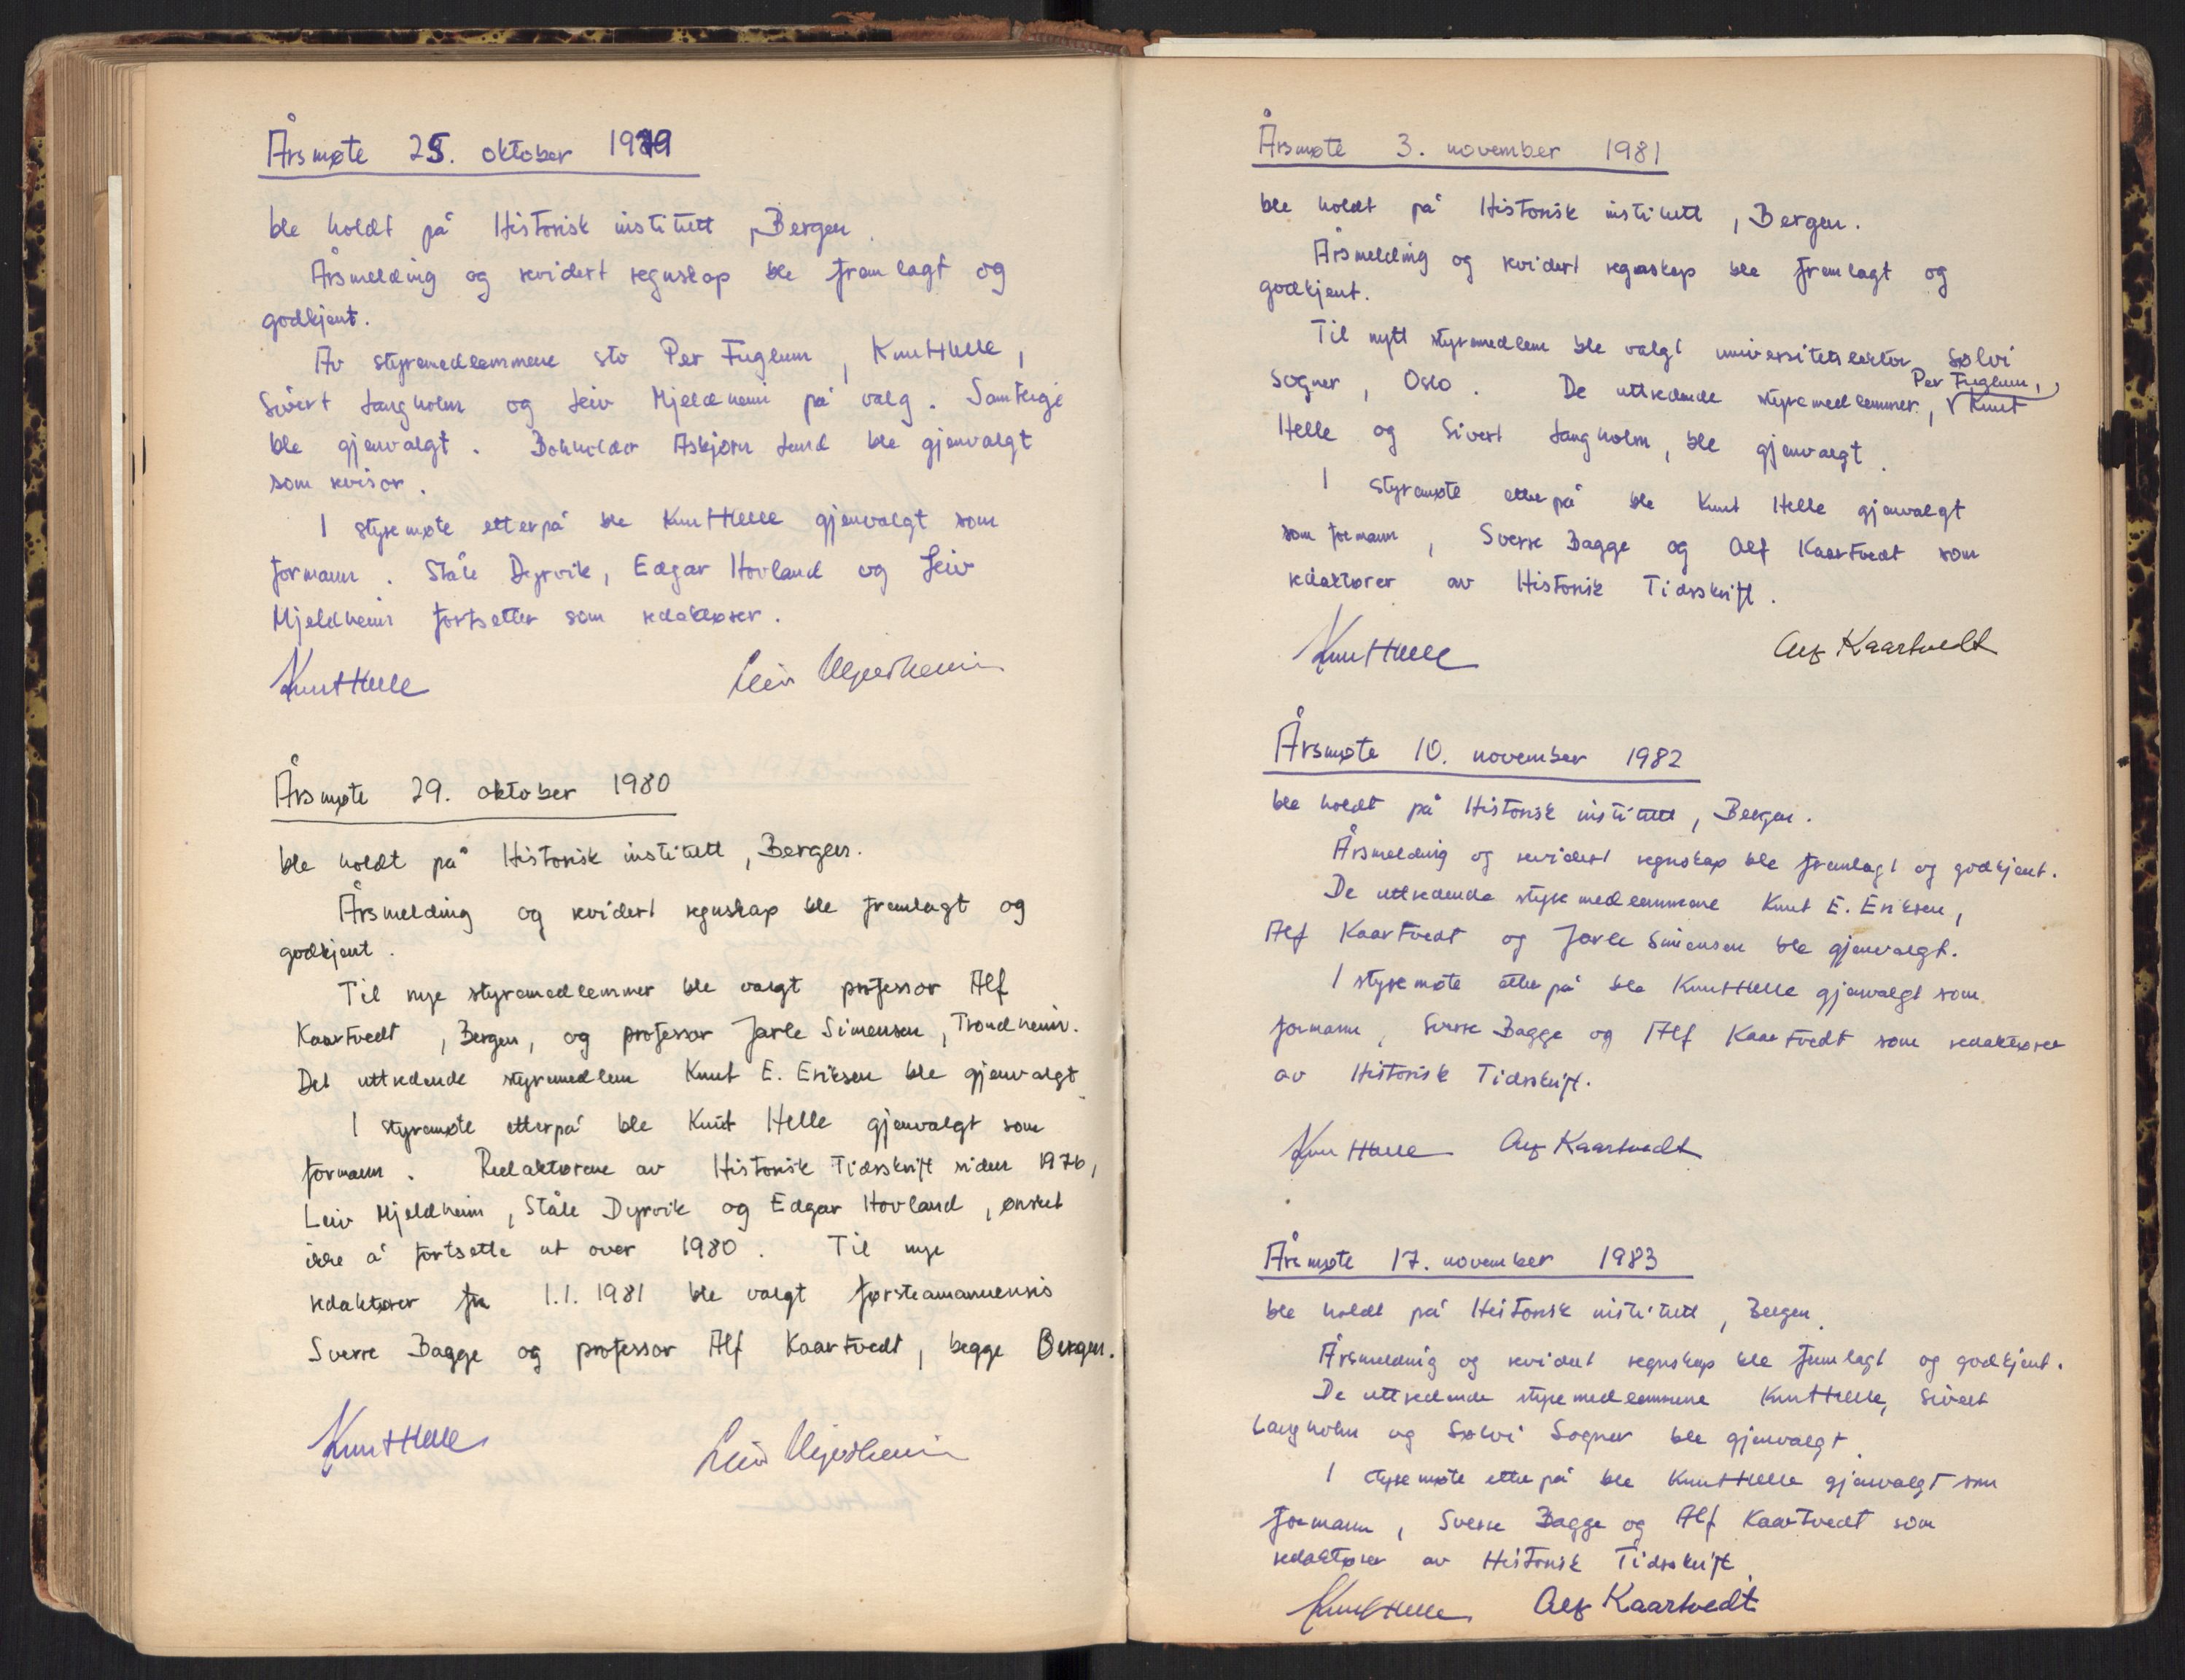 Årsmøte 25. oktober 1979
ble holdt på Historisk institutt, Bergen.
Årsmelding og revidert regnskap ble framlagt og
godkjent.
Av styremedlemmene sto Per Fuglum, Knut Helle,
Sivert Langholm og Leiv Mjeldheim på valg. Samtlige
ble gjenvalgt. Bokholder Askjørn Lund ble gjenvalgt
som revisor.
I styremøte etterpå ble Knut Helle gjenvalgt som
formann. Ståle Dyrvik, Edgar Hovland og Leiv
Mjeldheim fortsetter som redaktører.
Knut Helle Leiv Mjeldheim
Årsmøte 29. oktober 1980
ble holdt på Historisk institutt, Bergen.
Årsmelding og revidert regnskap ble framlagt og
godkjent.
Til nye styremedlemmer ble valgt professor Alf
Kaartvedt, Bergen, og professor Jarle Simensen, Trondheim.
Det uttredende styremedlem Knut E. Eriksen ble gjenvalgt.
I styremøte etterpå ble Knut Helle gjenvalgt som
formann. Redaktørene av Historisk Tidsskrift siden 1976,
Leiv Mjeldheim, Ståle Dyrvik og Edgar Hovland, ønsket
ikke å fortsette ut over 1980. Til nye
redaktører fra 1.1.1981 ble valgt førsteamanuensis
Sverre Bagge og professor Alf Kaartvedt, begge Bergen.
Knut Helle Leiv Mjeldheim
Årsmøte 3. november 1981
ble holdt på Historisk institutt, Bergen.
Årsmelding og revidert regnskap ble framlagt og
godkjent.
Til nytt styremedlem ble valgt universitetslektor Sølvi
Sogner, Oslo. De uttredende styremedlemmer, Per Fuglum, Knut
Helle og Sivert Langholm, ble gjenvalgt.
I styremøte etterpå ble Knut Helle gjenvalgt
som formann, Sverre Bagge og Alf Kaartvedt som
redaktører av Historisk Tidsskrift.
Knut Helle Alf Kaartvedt
Årsmøte 10. november 1982
ble holdt på Historisk institutt, Bergen.
Årsmelding og revidert regnskap ble framlagt og godkjent.
De uttredende styremedlemmene Knut E. Eriksen,
Alf Kaartvedt og Jarle Simensen ble gjenvalgt.
I styremøte etterpå ble Knut Helle gjenvalgt som
formann, Sverre Bagge og Alf Kaartvedt som redaktører
av Historisk Tidsskrift.
Knut Helle Alf Kaartvedt
Årsmøte 17. november 1983
ble holdt på Historisk institutt, Bergen.
Årsmelding og revidert regnskap ble framlagt og godkjent.
De uttredende styremedlemmene Knut Helle, Sivert
Langholm og Sølvi Sogner ble gjenvalgt.
I styremøte etterpå ble Knut Helle gjenvalgt som
formann, Sverre Bagge og Alf Kaartvedt som
redaktører av Historisk Tidsskrift.
Knut Helle Alf Kaartvedt